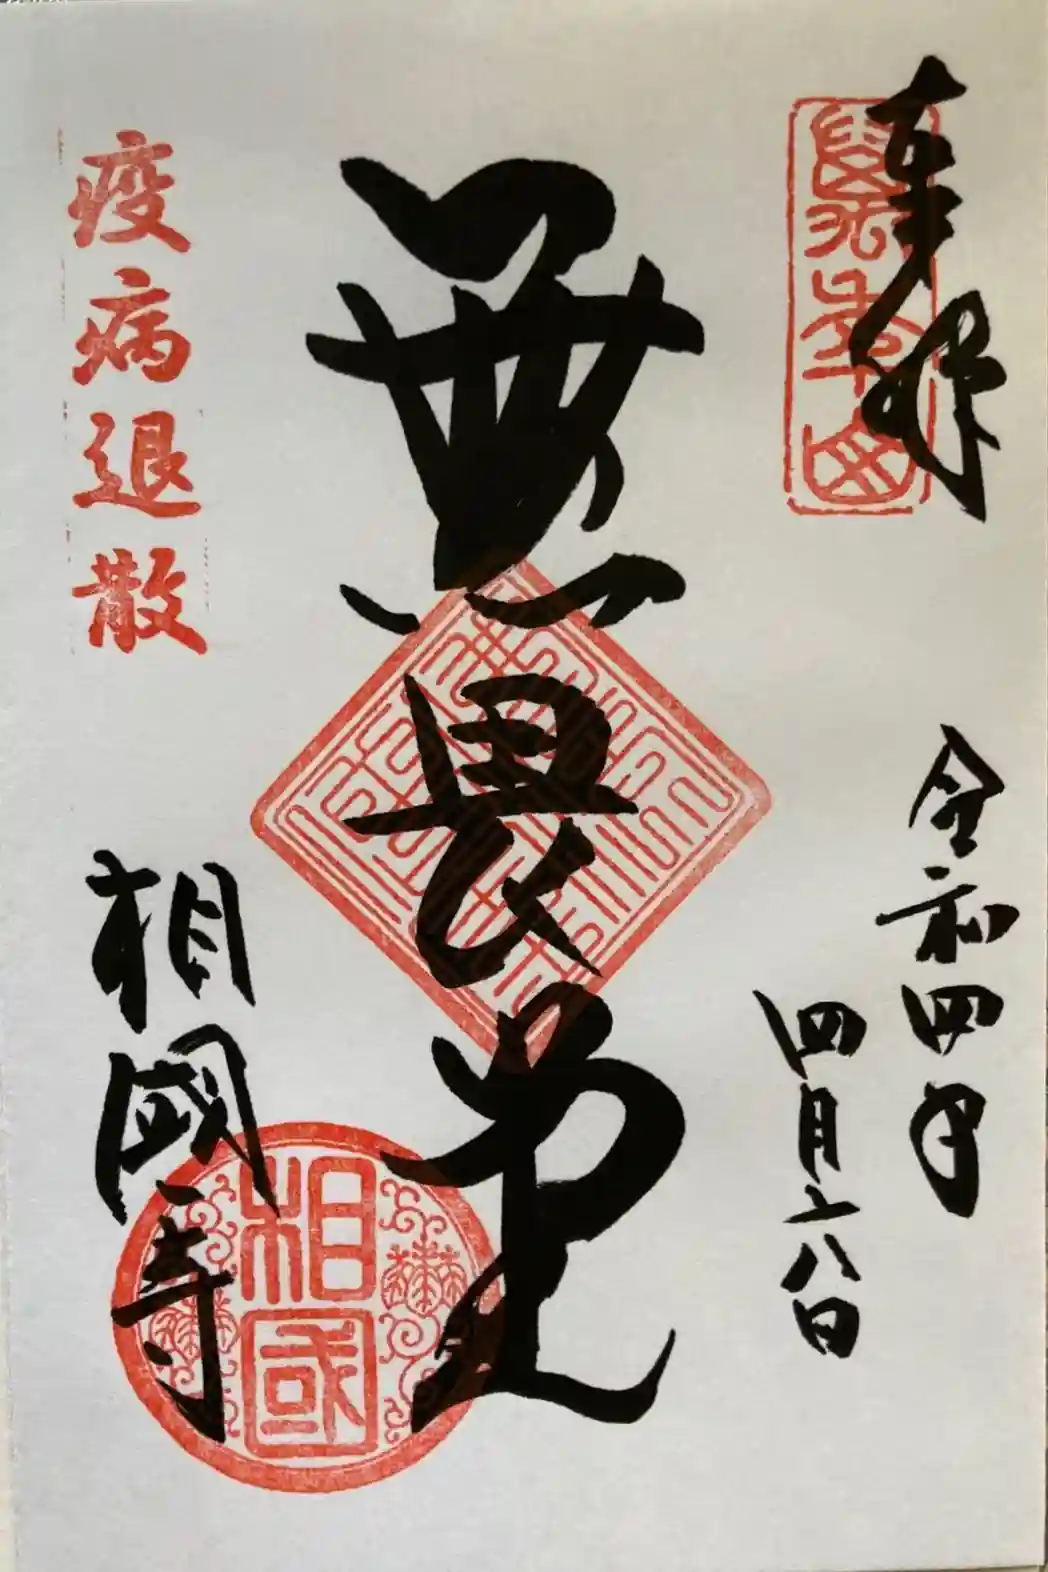 奉拝
令和四年
四月六日
無畏堂
疫病退散
相國寺
相國